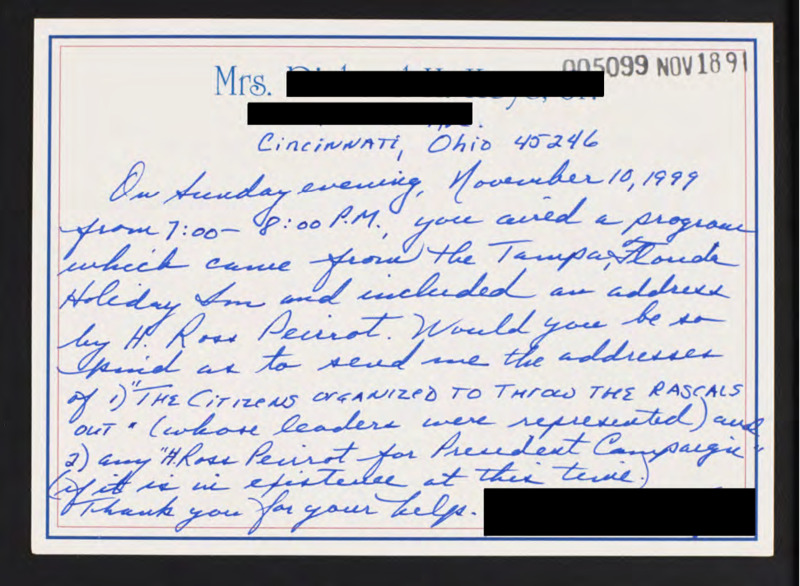 Mrs.
005099 NOV 18 91
Cincinnati, Ohio 45246
On Sunday evening, November 10, 1999
from 7:00 - 8:00 P.M., you aired a program
which came from the Tampa, Florida
Holiday Inn and included an address
by H. Ross Peirrot. Would you be so
kind as to send me the addresses
of 1) "THE CITIZENS ORGANIZED TO THROW THE RASCALS
OUT" (whose leaders were represented) and
2) any "H. Ross Peirrot for President Campaign"
(if it is in existence at this time.)
Thank you for your help.